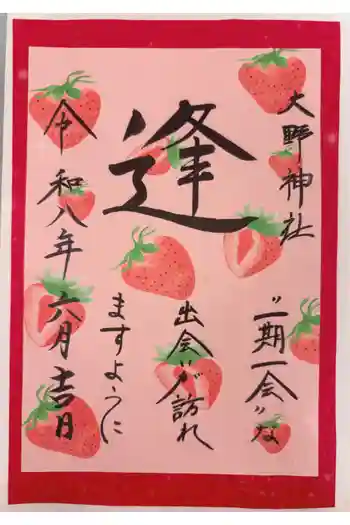 大野神社
逢
〝一期一会〟な
出会いが訪れ
ますように
令和八年六月吉日